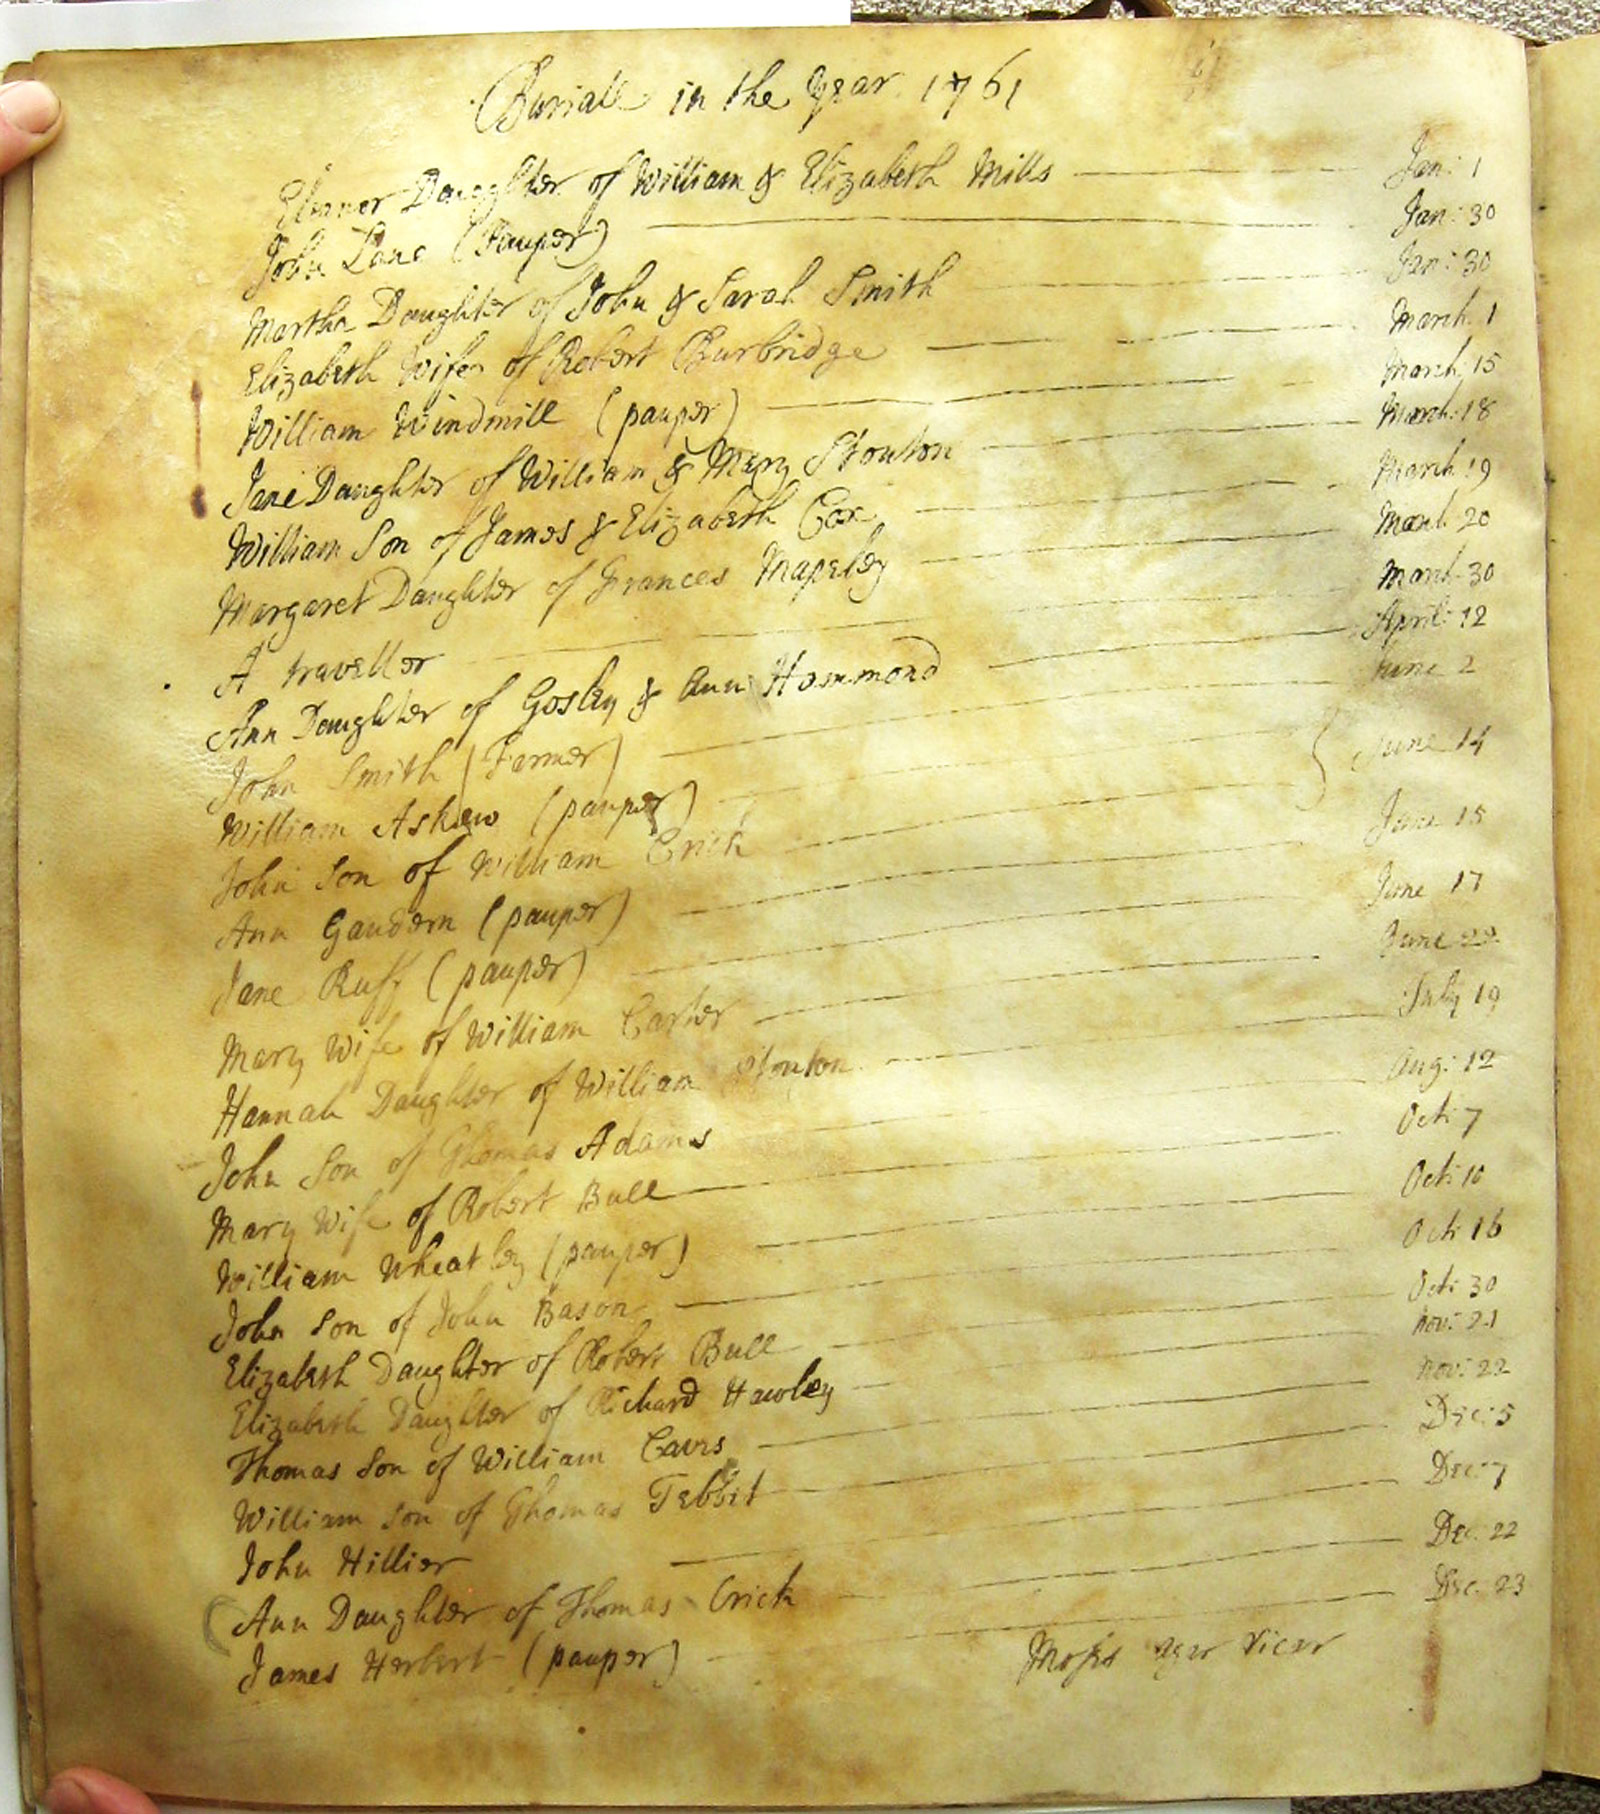 Burialls in the Year 1761
Eleanor Daughter of William & Elizabeth Mills Jan: 1
John Lane (Pauper) Jan: 30
Martha Daughter of John & Sarah Smith Jan: 30
Elizabeth Wife of Robert Burbridge March 1
William Windmill (pauper) March 15
Jane Daughter of William & Mary Stouton March 18
William Son of James & Elizabeth Cox March 19
Margaret Daughter of Frances Mapeley March 20
A traveller March 30
Ann Daughter of Gosley & Ann Hammond April: 12
John Smith (Farmer) June 2
William Askew (pauper)
John Son of William Crick } June 14
Ann Gaudern (pauper) June 15
Jane Ruff (pauper) June 17
Mary Wife of William Carter June 22
Hannah Daughter of William Stouton July 19
John Son of Thomas Adams Aug: 12
Mary Wife of Robert Bull Oct: 7
William Wheatley (pauper) Oct: 10
John Son of John Bason Oct: 16
Elizabeth Daughter of Robert Bull Oct: 30
Elizabeth Daughter of Richard Hawley Nov: 21
Thomas Son of William Caves Nov: 22
William Son of Thomas Tebbit Dec: 5
John Hillier Dec: 7
Ann Daughter of Thomas Crick Dec: 22
James Herbert (pauper) Dec: 23
Moses Agar Vicar